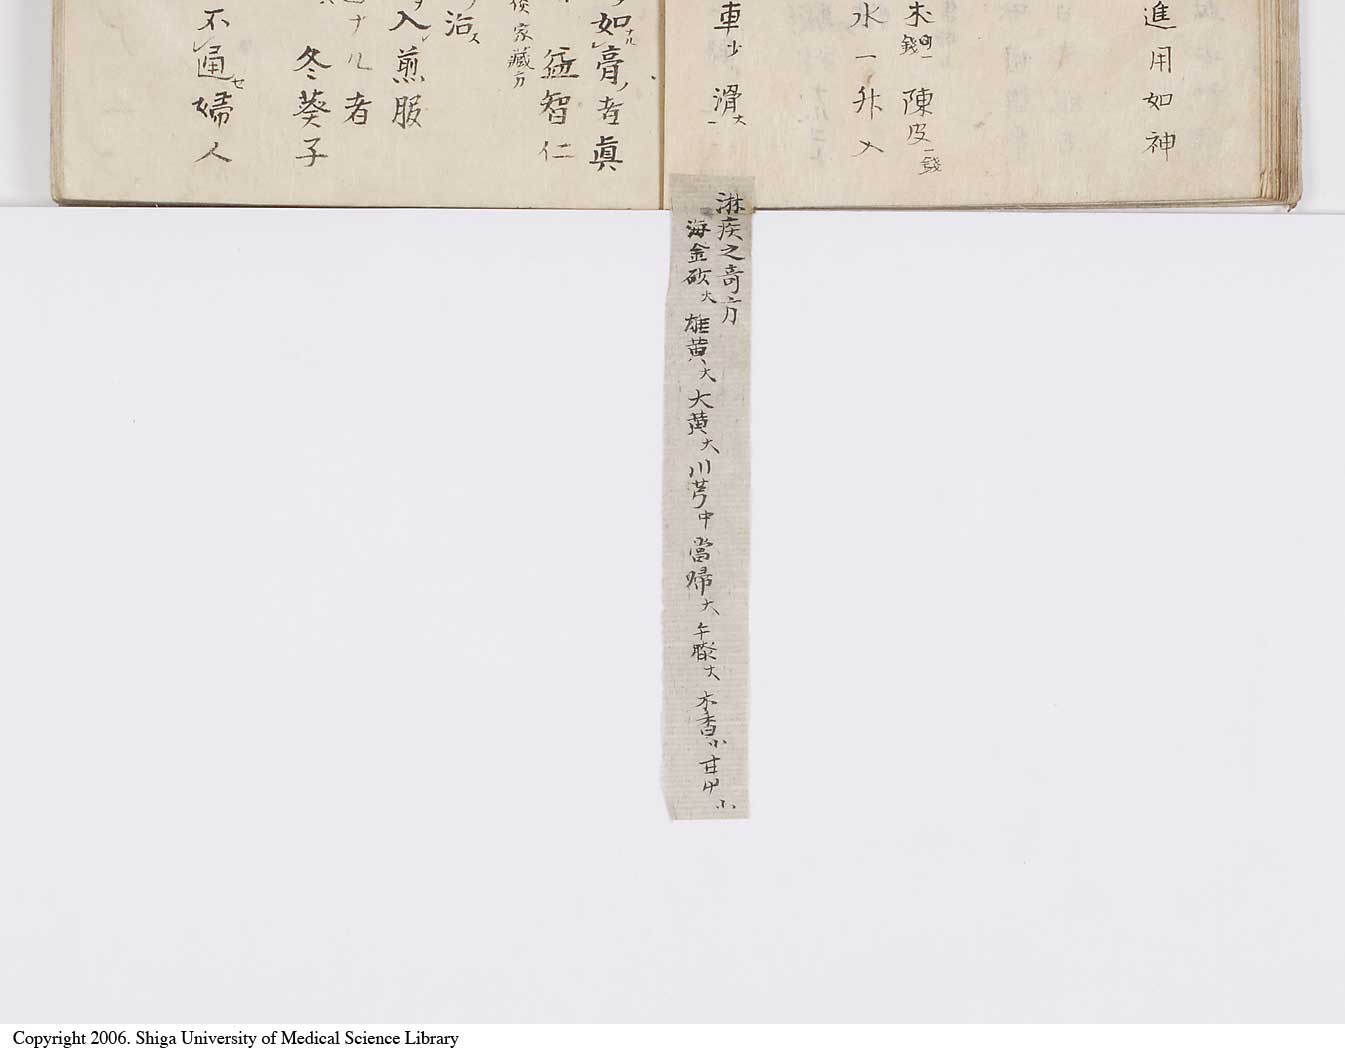 進用如神
朮
錢一
陳皮一錢
水一升入
車少 滑大
如ナル膏ノ者眞
益智仁
家藏方
治ス
入煎服
ナル者
冬葵子
不通セ婦人
淋疾之奇方
海金砂大 雄黄大 大黄大 川芎中 當帰大 午膝大 木香小 甘中小
Copyright 2006. Shiga University of Medical Science Library